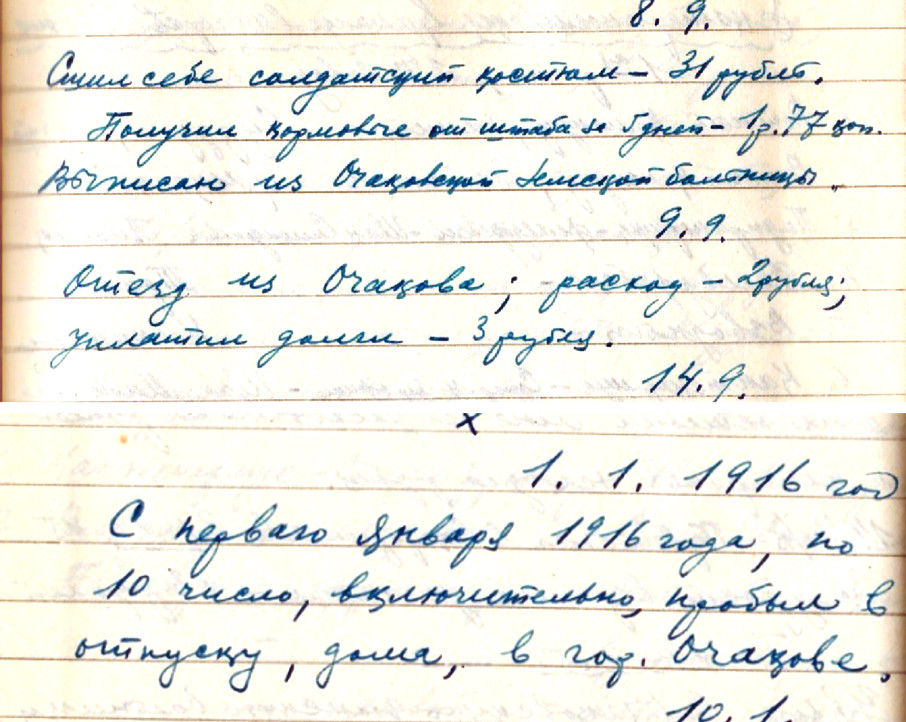 8. 9.
Сшил себе солдатский костюм – 31 рубль.
Получил кормовые от штаба за 5 дней – 1 р. 77 коп.
Выписан из Очаковской земской больницы.
9. 9.
Отезд из Очакова; расход – 2 рубля;
уплатил долги – 3 рубля.
14. 9.
х
1. 1. 1916 год
С перваго января 1916 года, по
10 число, включительно, пробыл в
отпуску, дома, в гор. Очакове.
10. 1.